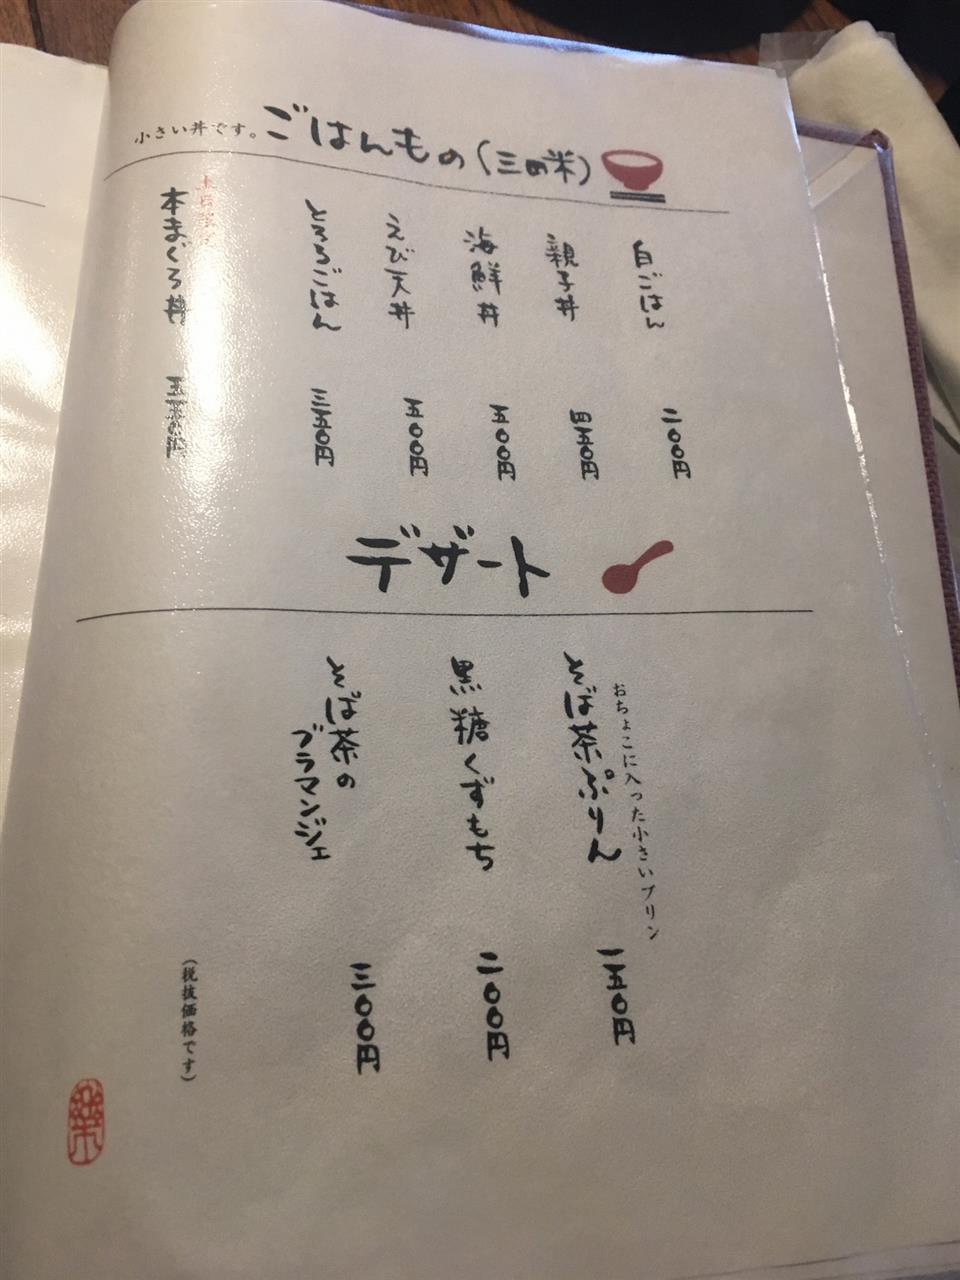 小さい丼です。ごはんもの(三の米)
白ごはん 二〇〇円
親子丼 四五〇円
海鮮丼 五〇〇円
えび天丼 五〇〇円
とろろごはん 三五〇円
本まぐろ丼
デザート
おちょこに入った小さいプリン
そば茶ぷりん 一五〇円
黒糖くずもち 二〇〇円
そば茶の
ブラマンジェ 三〇〇円
(税抜価格です)